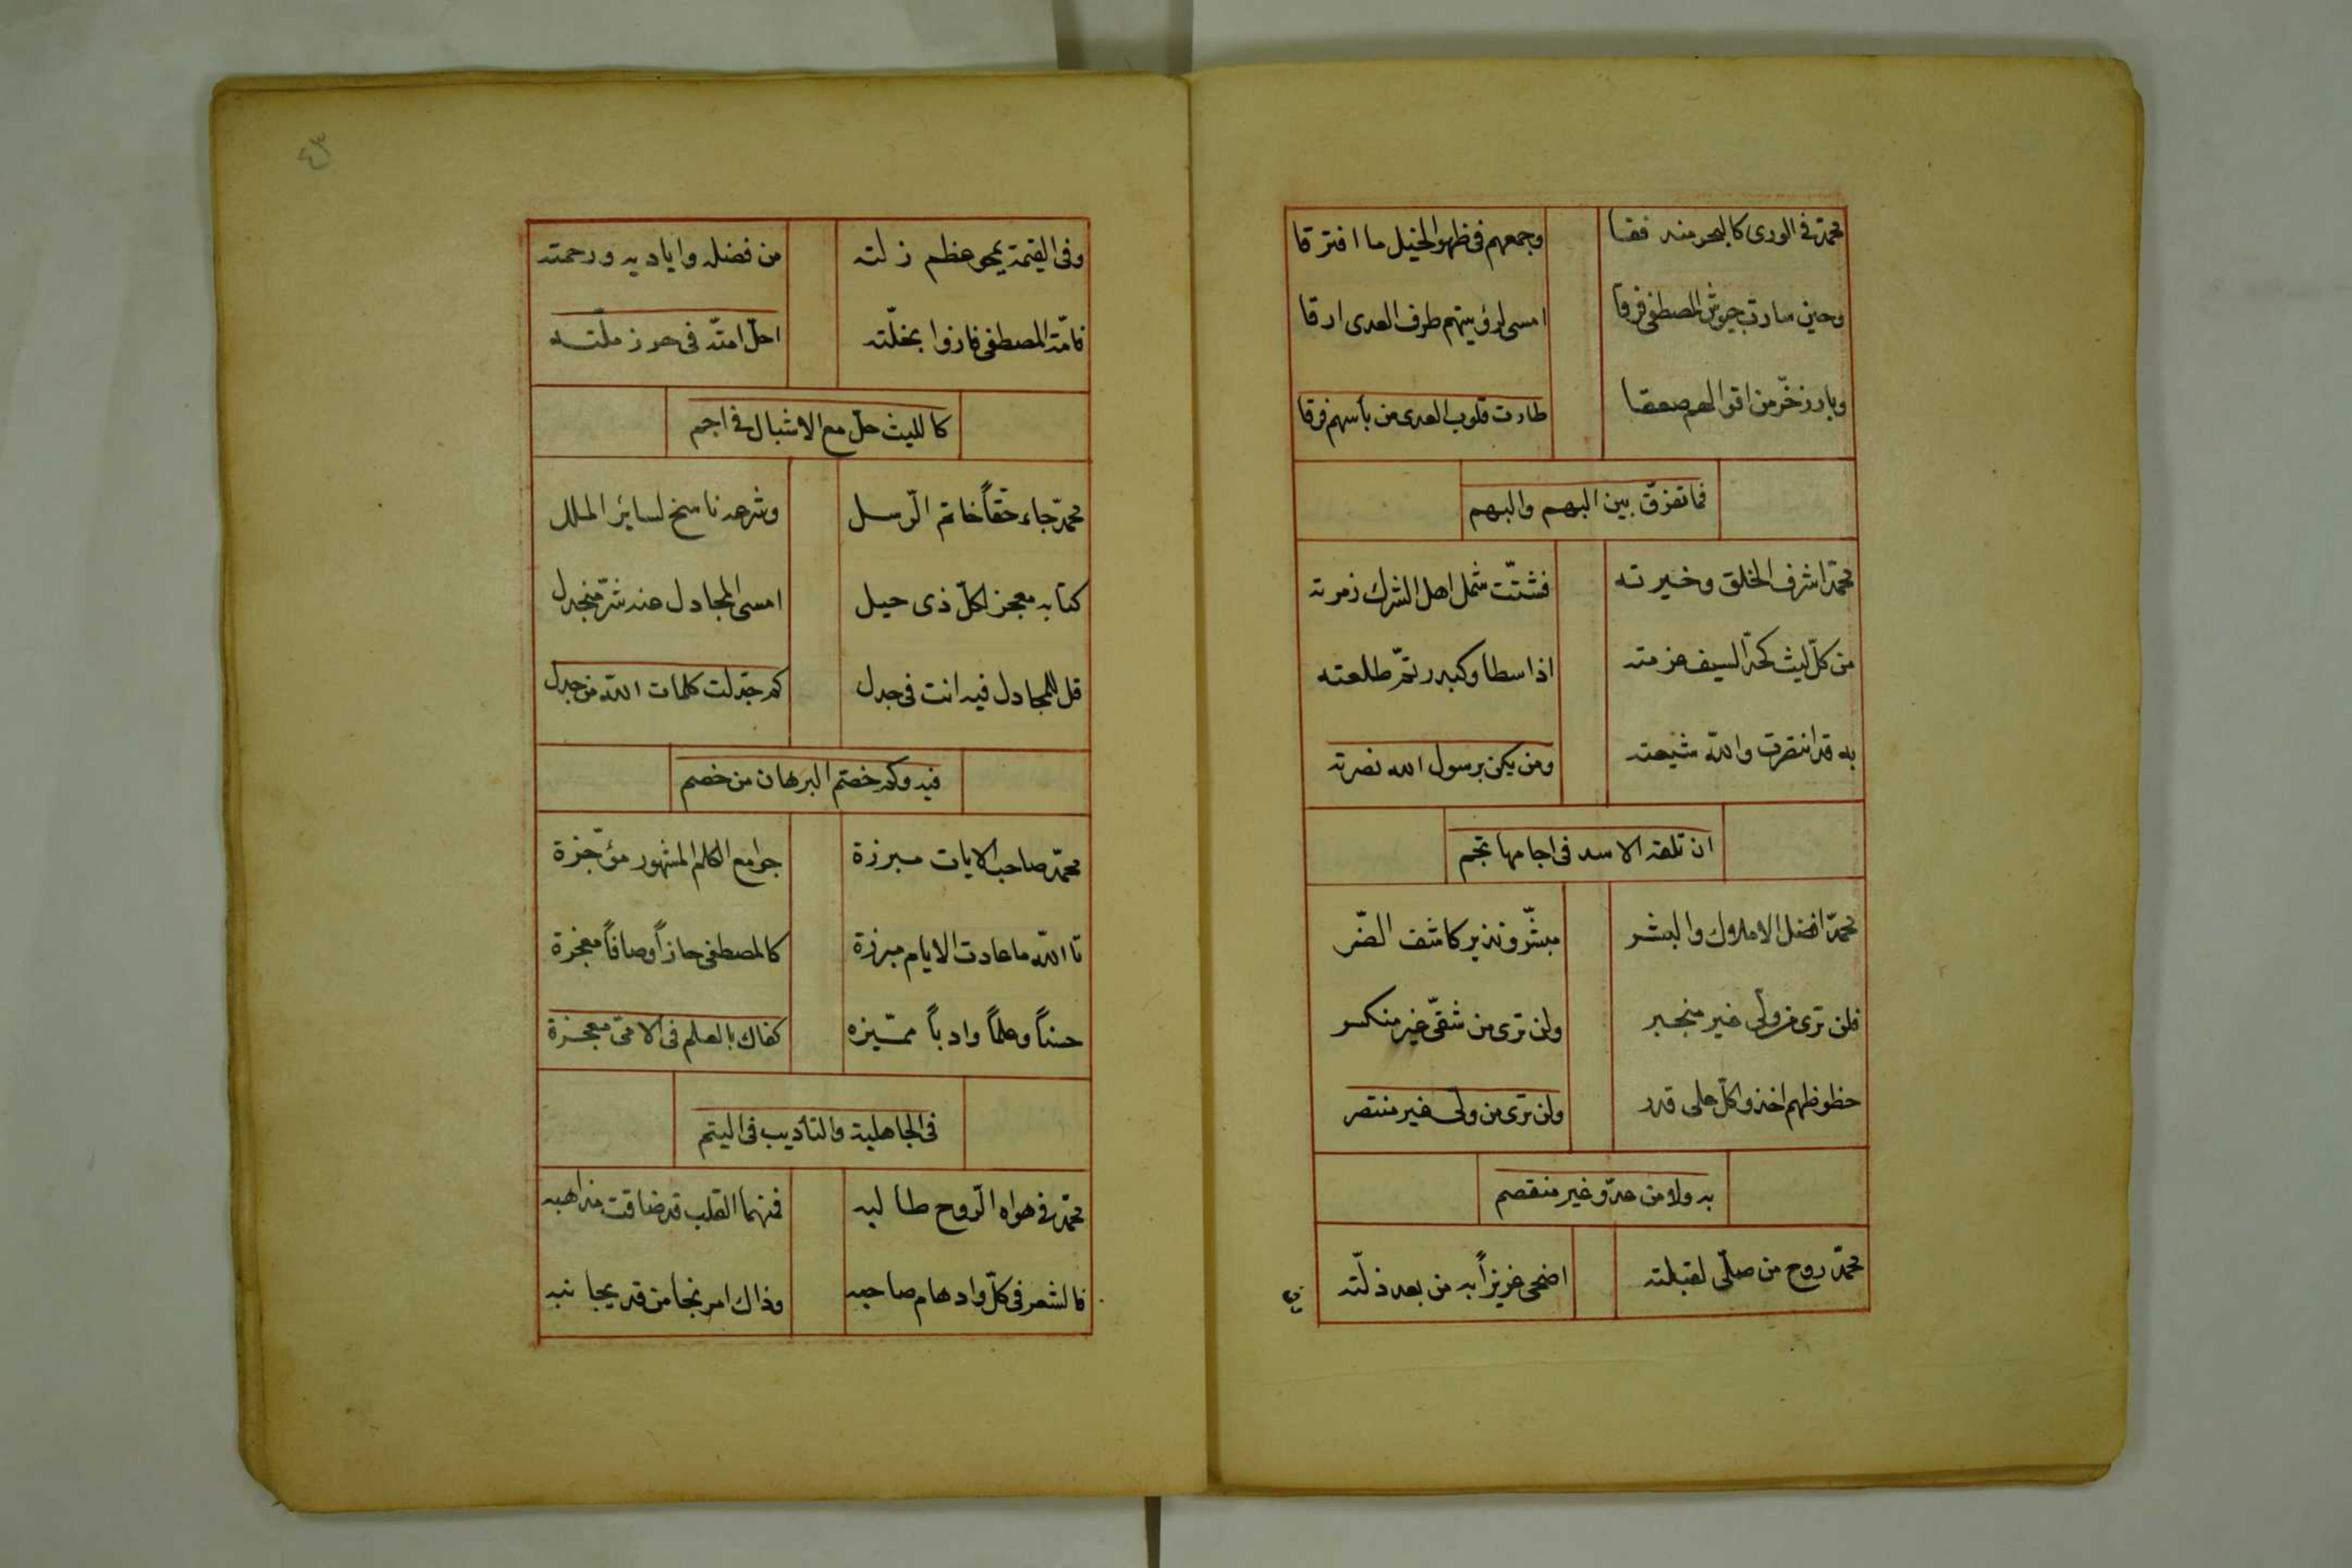 محمّد في الورى كالبحر منه فقا وجمعهم في ظهو الخيل ما افترقا
وحين سارت جيوش المصطفى فرقا امسى لرؤيتهم طرف العدى ارقا
وبارز خرّ من اقوالهم صعقا طارت قلوب العدى من بأسهم فرقا
فما تفرّق بين البهم والبهم
محمّد اشرف الخلق وخيرته فشتّت شمل اهل الشرك زمرته
من كلّ ليث كحدّ السيف عزمته اذا سطا وكبدر تمّ طلعته
به قد انتصرت والله شيعته ومن يكن برسول الله نصرته
ان تلقه الاسد في اجامها تجم
محمّد افضل الاملاك والبشر مبشّر ونذير كاشف الضّر
فلن ترى من ولّى غير منجبر ولن ترى من شقيّ غير منكسر
حظوظهم اخذوا كلّ على قدر ولن ترى من ولى غير منتصر
به ولا من عدّو غير منقصم
محمّد روح من صلّى لقبلته اضحى عزيزاً به من بعد ذلّته
وفى
٤٣
وفى القيمة يمحو عظم زلته من فضله واياديه ورحمته
فامّة المصطفى فازوا بخلّته احلّ امتّه فى حرز ملّته
كالليث حلّ مع الاشبال في اجم
محمّد جاء حقّاً خاتم الرّسل وشرعه ناسخ لسائر الملل
كتابه معجز لكلّ ذى حيل امسى المجادل عنه شرّ منجدل
قل للمجادل فيه انت فى جدل كم جدّلت كلمات اللّه من جدل
فيه وكم خصّم البرهان من خصم
محمّد صاحب الايات مبرزة جوامع الكلم المشهور مؤجزة
تا اللّه ما عادت الايام مبرزة كالمصطفى حاز اوصافاً معجزة
حسناً وعلماً وادباً مميّزه كفاك بالعلم فى الامّى معجزة
فى الجاهلية والتأديب فى اليتم
محمّد في هواه الرّوح طالبه فمنهما القلب قد ضاقت مذاهبه
فالشعر فى كلّ واد هام صاحبه وذاك امر نجا من قد يجانبه